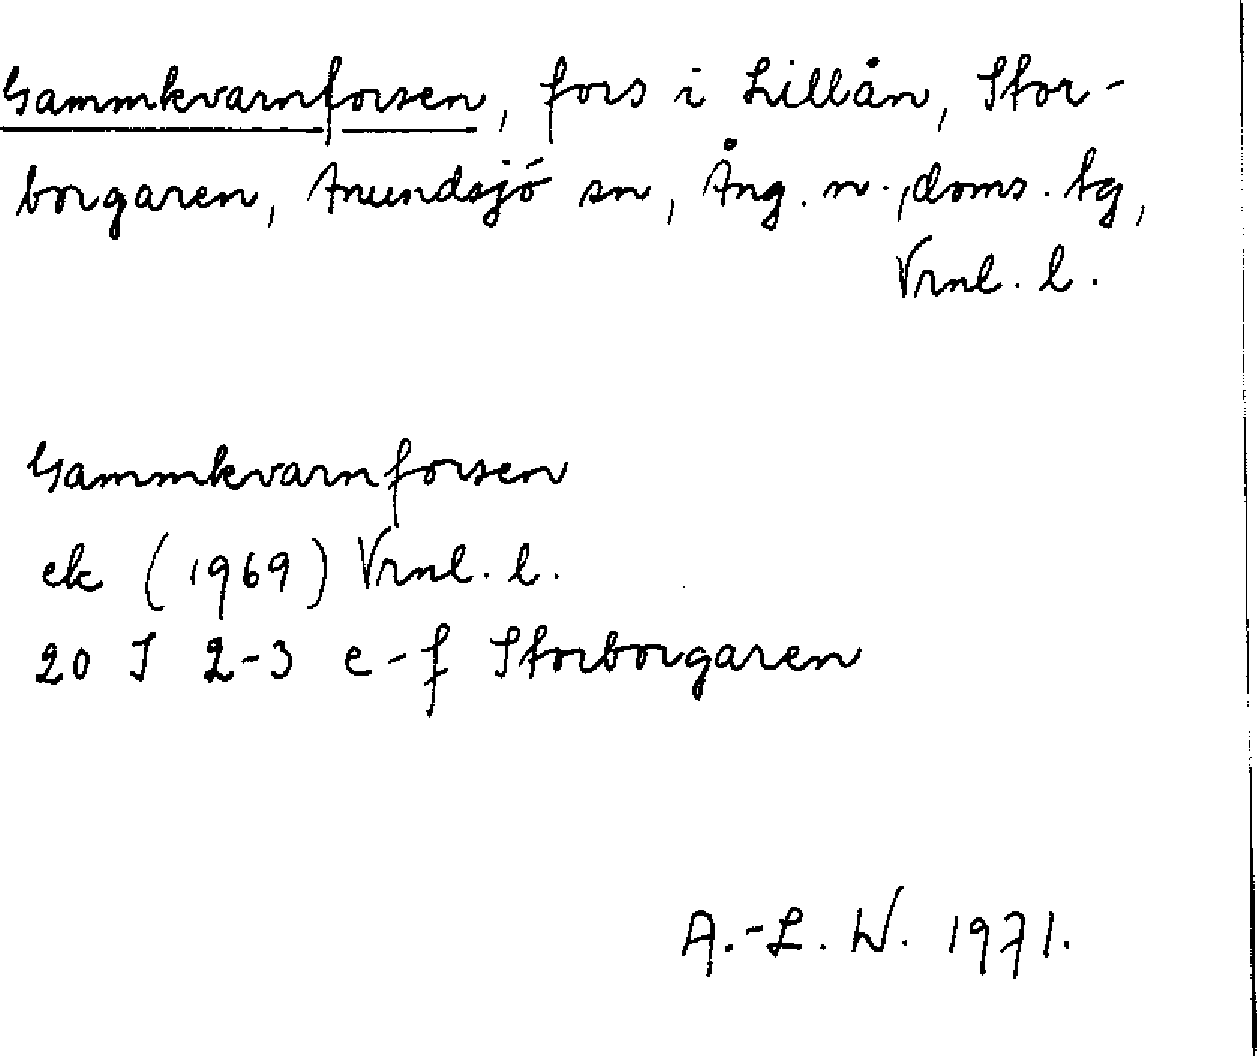 Gammkvarnforsen, fors i Lillån, Stor-
borgaren, Anundsjö sn, Ång. n., doms. tg,
Vrnl. l.
Gammkvarnforsen
ek (1969) Vrnl. l.
20 I 2-3 e-f Storborgaren
A.-L. W. 1971.